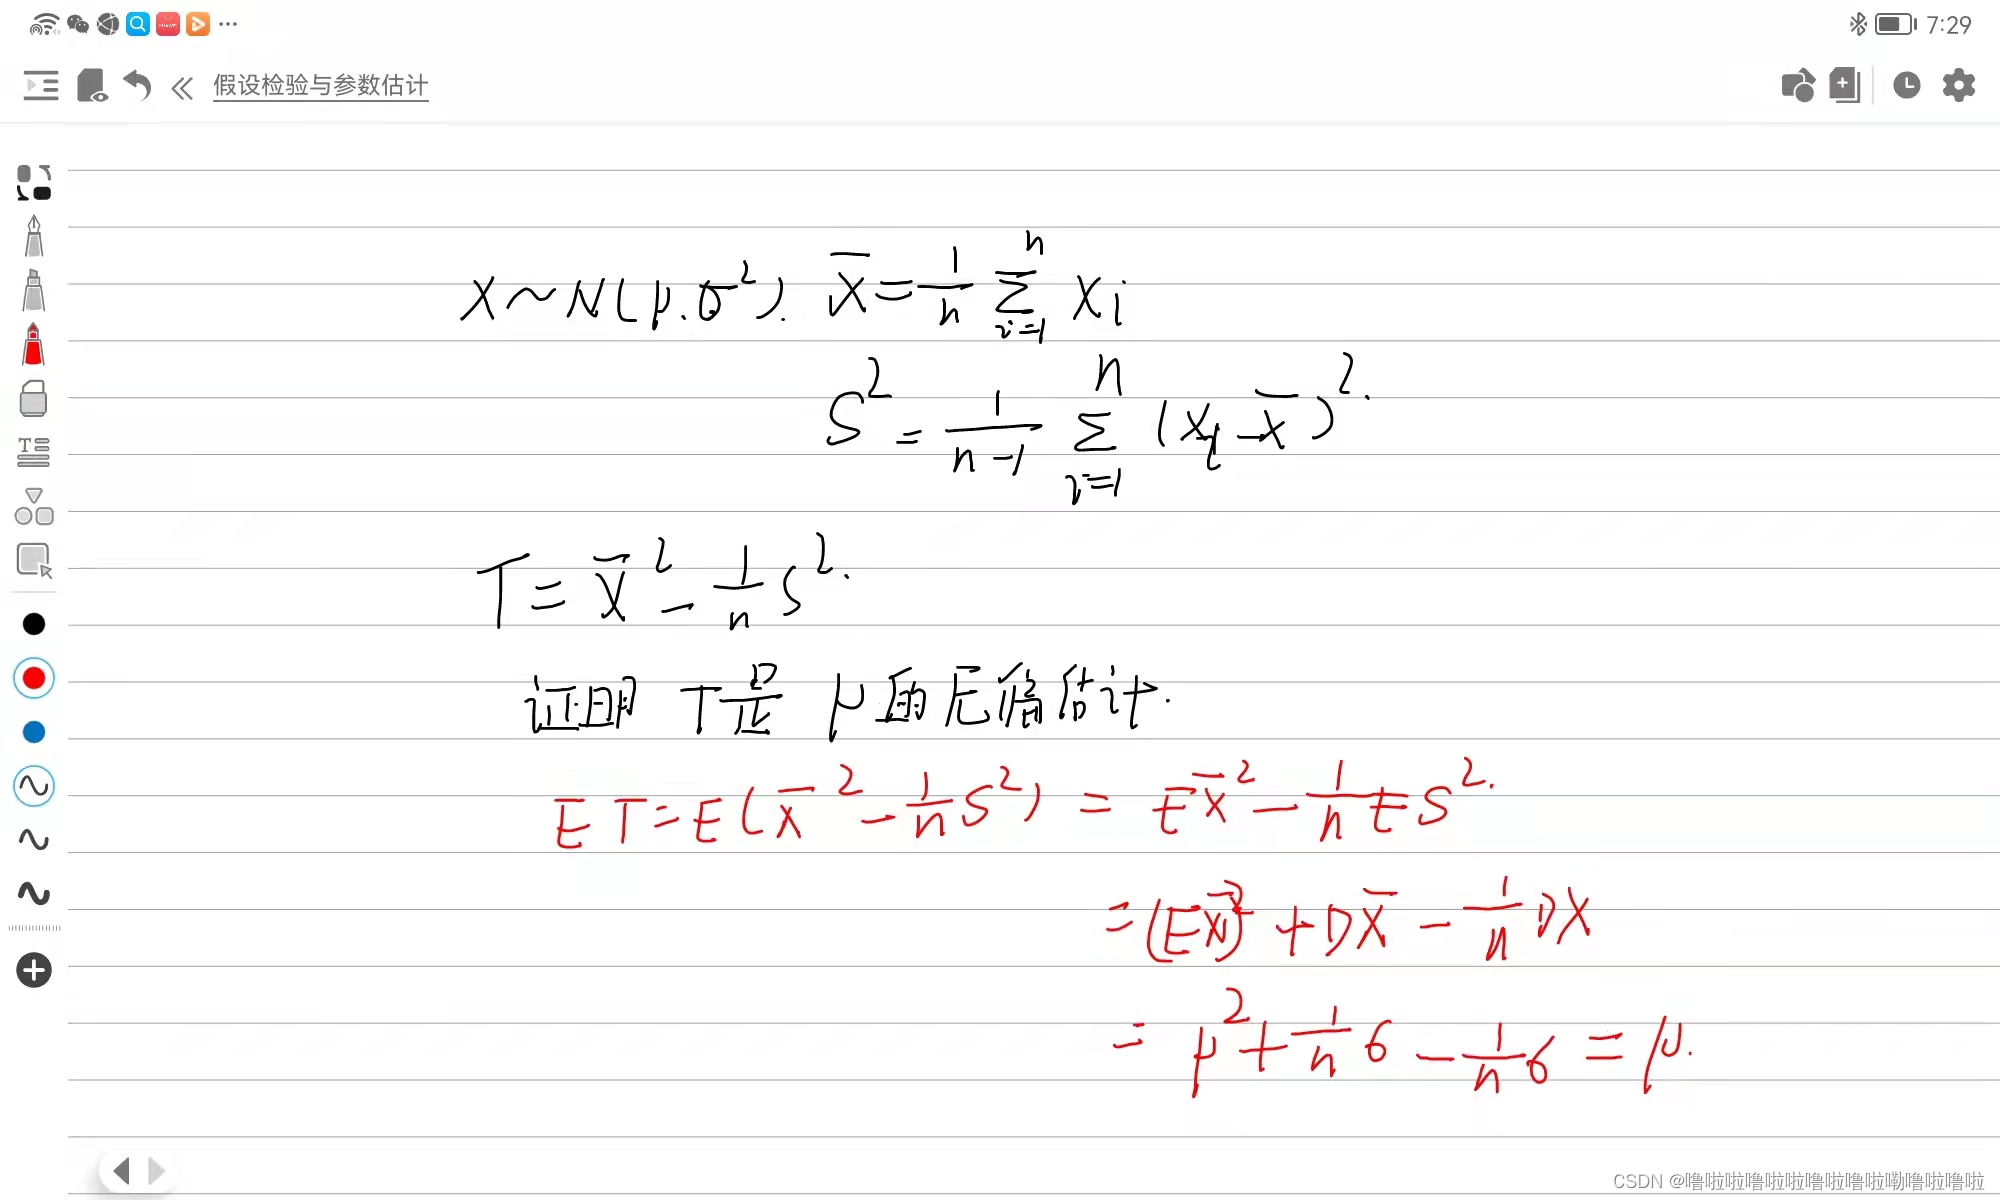 7:29
假设检验与参数估计
X~N(μ.σ²). X̄=1/n ∑ⁿᵢ₌₁ Xi
S²=1/(n-1) ∑ⁿᵢ₌₁ (Xi-X̄)².
T=X̄²-1/n S².
证明 T是 μ的无偏估计.
ET=E(X̄²-1/n S²) = EX̄²-1/n ES².
=(EX̄)²+DX̄-1/n DX
= μ²+1/n 6-1/n 6=μ.
CSDN @噜啦啦噜啦啦噜啦噜啦嘞噜啦噜啦